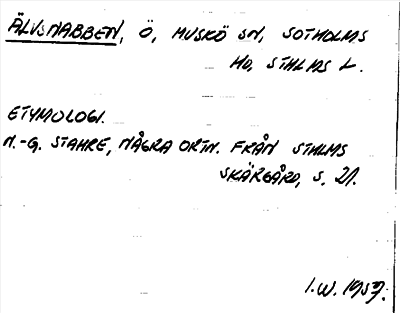 ÄLVSNABBEN, Ö, MUSKÖ SN, SOTHOLMS
HD, STHLMS L.
ETYMOLOGI.
N.-G. STAHRE, NÅGRA ORTN. FRÅN STHLMS
SKÄRGÅRD, S. 21.
I.W. 1957.